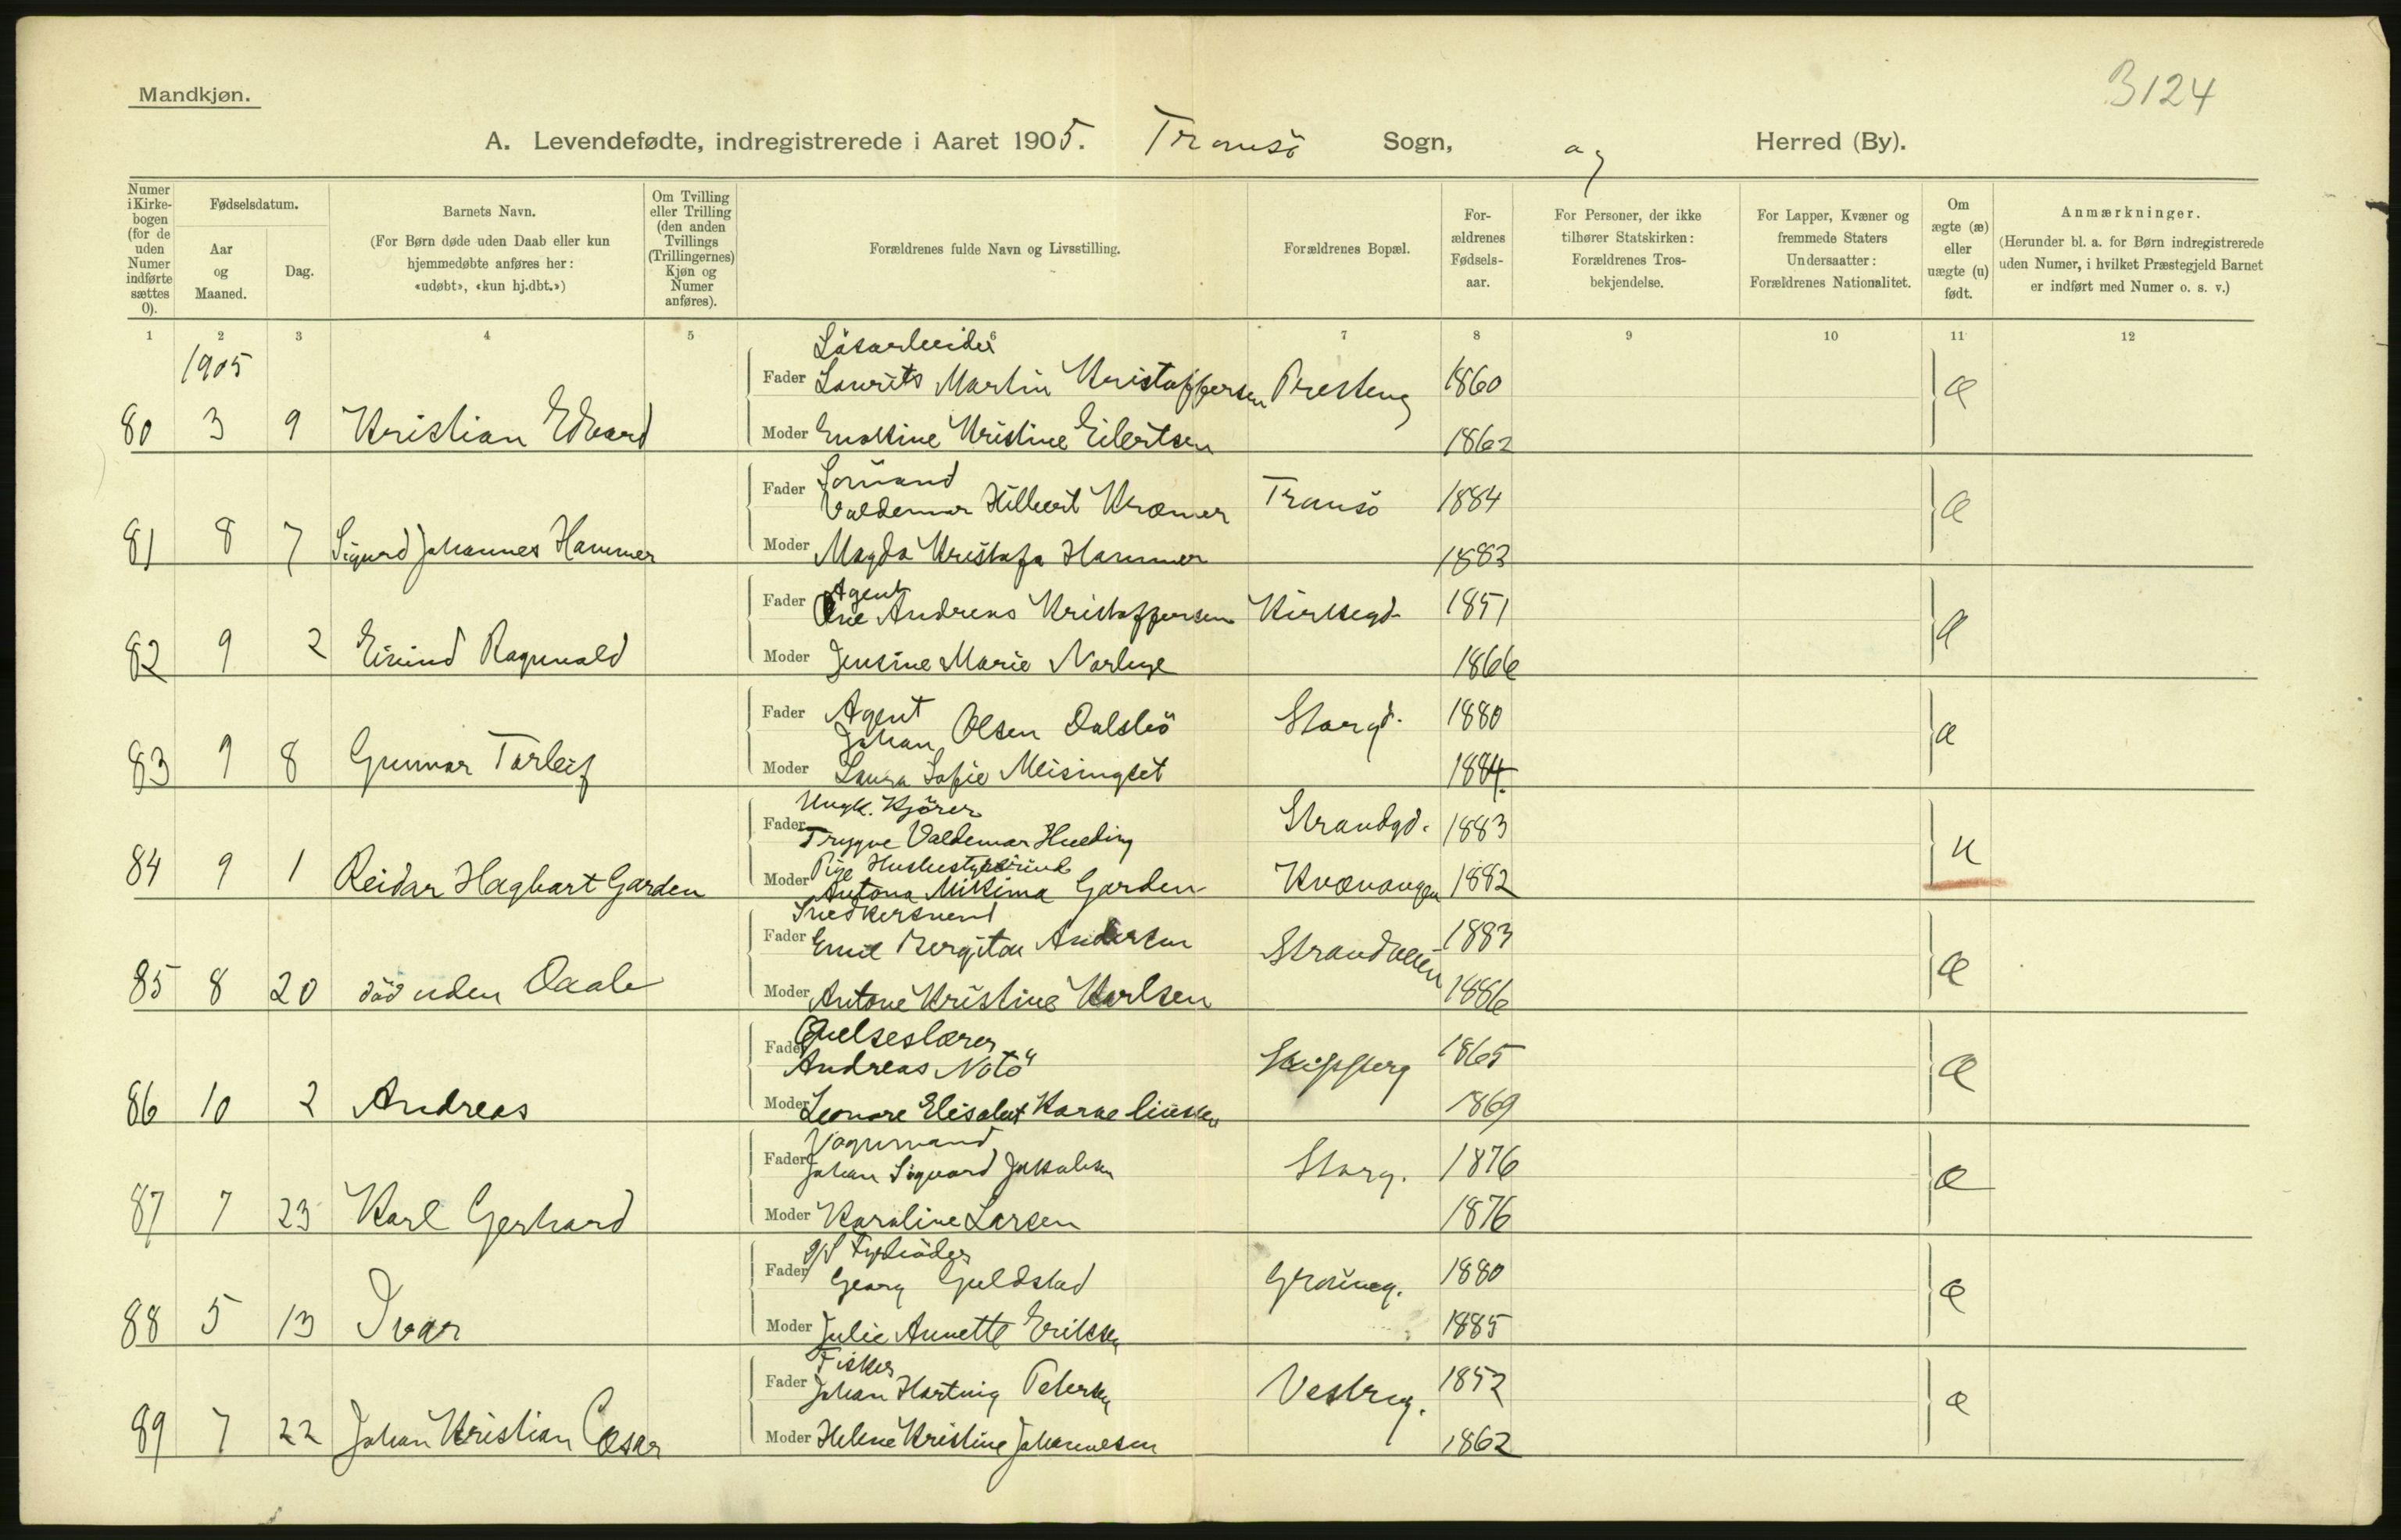 Mandkjøn.
3124
A. Levendefødte, indregistrerede i Aaret 1905. Tromsö Sogn, og Herred (By).
Numer i Kirkebogen (for de uden Numer indførte sættes 0).
Fødselsdatum.
Aar og Maaned.
Dag.
Barnets Navn.
(For Børn døde uden Daab eller kun hjemmedøbte anføres her: «udøbt», «kun hj.dbt.»)
Om Tvilling eller Trilling (den anden Tvillings (Trillingernes) Kjøn og Numer anføres).
Forældrenes fulde Navn og Livsstilling.
Forældrenes Bopæl.
For-ældrenes Fødsels-aar.
For Personer, der ikke tilhører Statskirken: Forældrenes Tros-bekjendelse.
For Lapper, Kvæner og fremmede Staters Undersaatter: Forældrenes Nationalitet.
Om ægte (æ) eller uægte (u) født.
Anmærkninger.
(Herunder bl. a. for Børn indregistrerede uden Numer, i hvilket Præstegjeld Barnet er indført med Numer o. s. v.)
1 2 3 4 5 6 7 8 9 10 11 12
1905
Lösarbeider
Fader Laurits Martin Kristoffersen Presteng 1860 æ
80 3 9 Kristian Edvard Moder Kristine Eilertsen 1862
Fader Valdemar Hilbert Kræmer Tromsö 1884 æ
81 8 7 Sigurd Johannes Hammer Moder Magda Kristofa Hammer 1883
Agent
Fader Ole Andreas Kristoffersen Kirkegd. 1851 æ
82 9 2 Eivind Ragnvald Moder Jensine Marie Norbye 1866
Agent
Fader Johan Olsen Dalsbö Storgd. 1880 æ
83 9 8 Gunnar Torleif Moder Laura Sofie Meisingset 1884.
Ungk. Kjörer
Fader Trygve Valdemar Strandgd. 1883 u
Pige
84 9 1 Reidar Hagbart Garden Moder Antona Mikima Garden Kvænangen 1882
Snedkersvend
Fader Emil Bergiton Andersen Strandveien 1883 æ
85 8 20 död uden Daab Moder Antone Kristine Karlsen 1886
Övelseslærer
Fader Andreas Notö Skipperg 1865 æ
86 10 2 Andreas Moder Leonore Elisabet Karneliussen 1869
Vognmand
Fader Johan Sigvard Jakobsen Storg. 1876 æ
87 7 23 Karl Gerhard Moder Karoline Larsen 1876
D/S Fyrböder
Fader Georg Guldstad Grönneg. 1880 æ
88 5 13 Ivar Moder Julie Annette Eriksen 1885
Fisker
Fader Johan Hartvig Petersen Vestreg. 1852 æ
89 7 22 Johan Kristian Cæsar Moder Helene Kristine Johannesen 1862